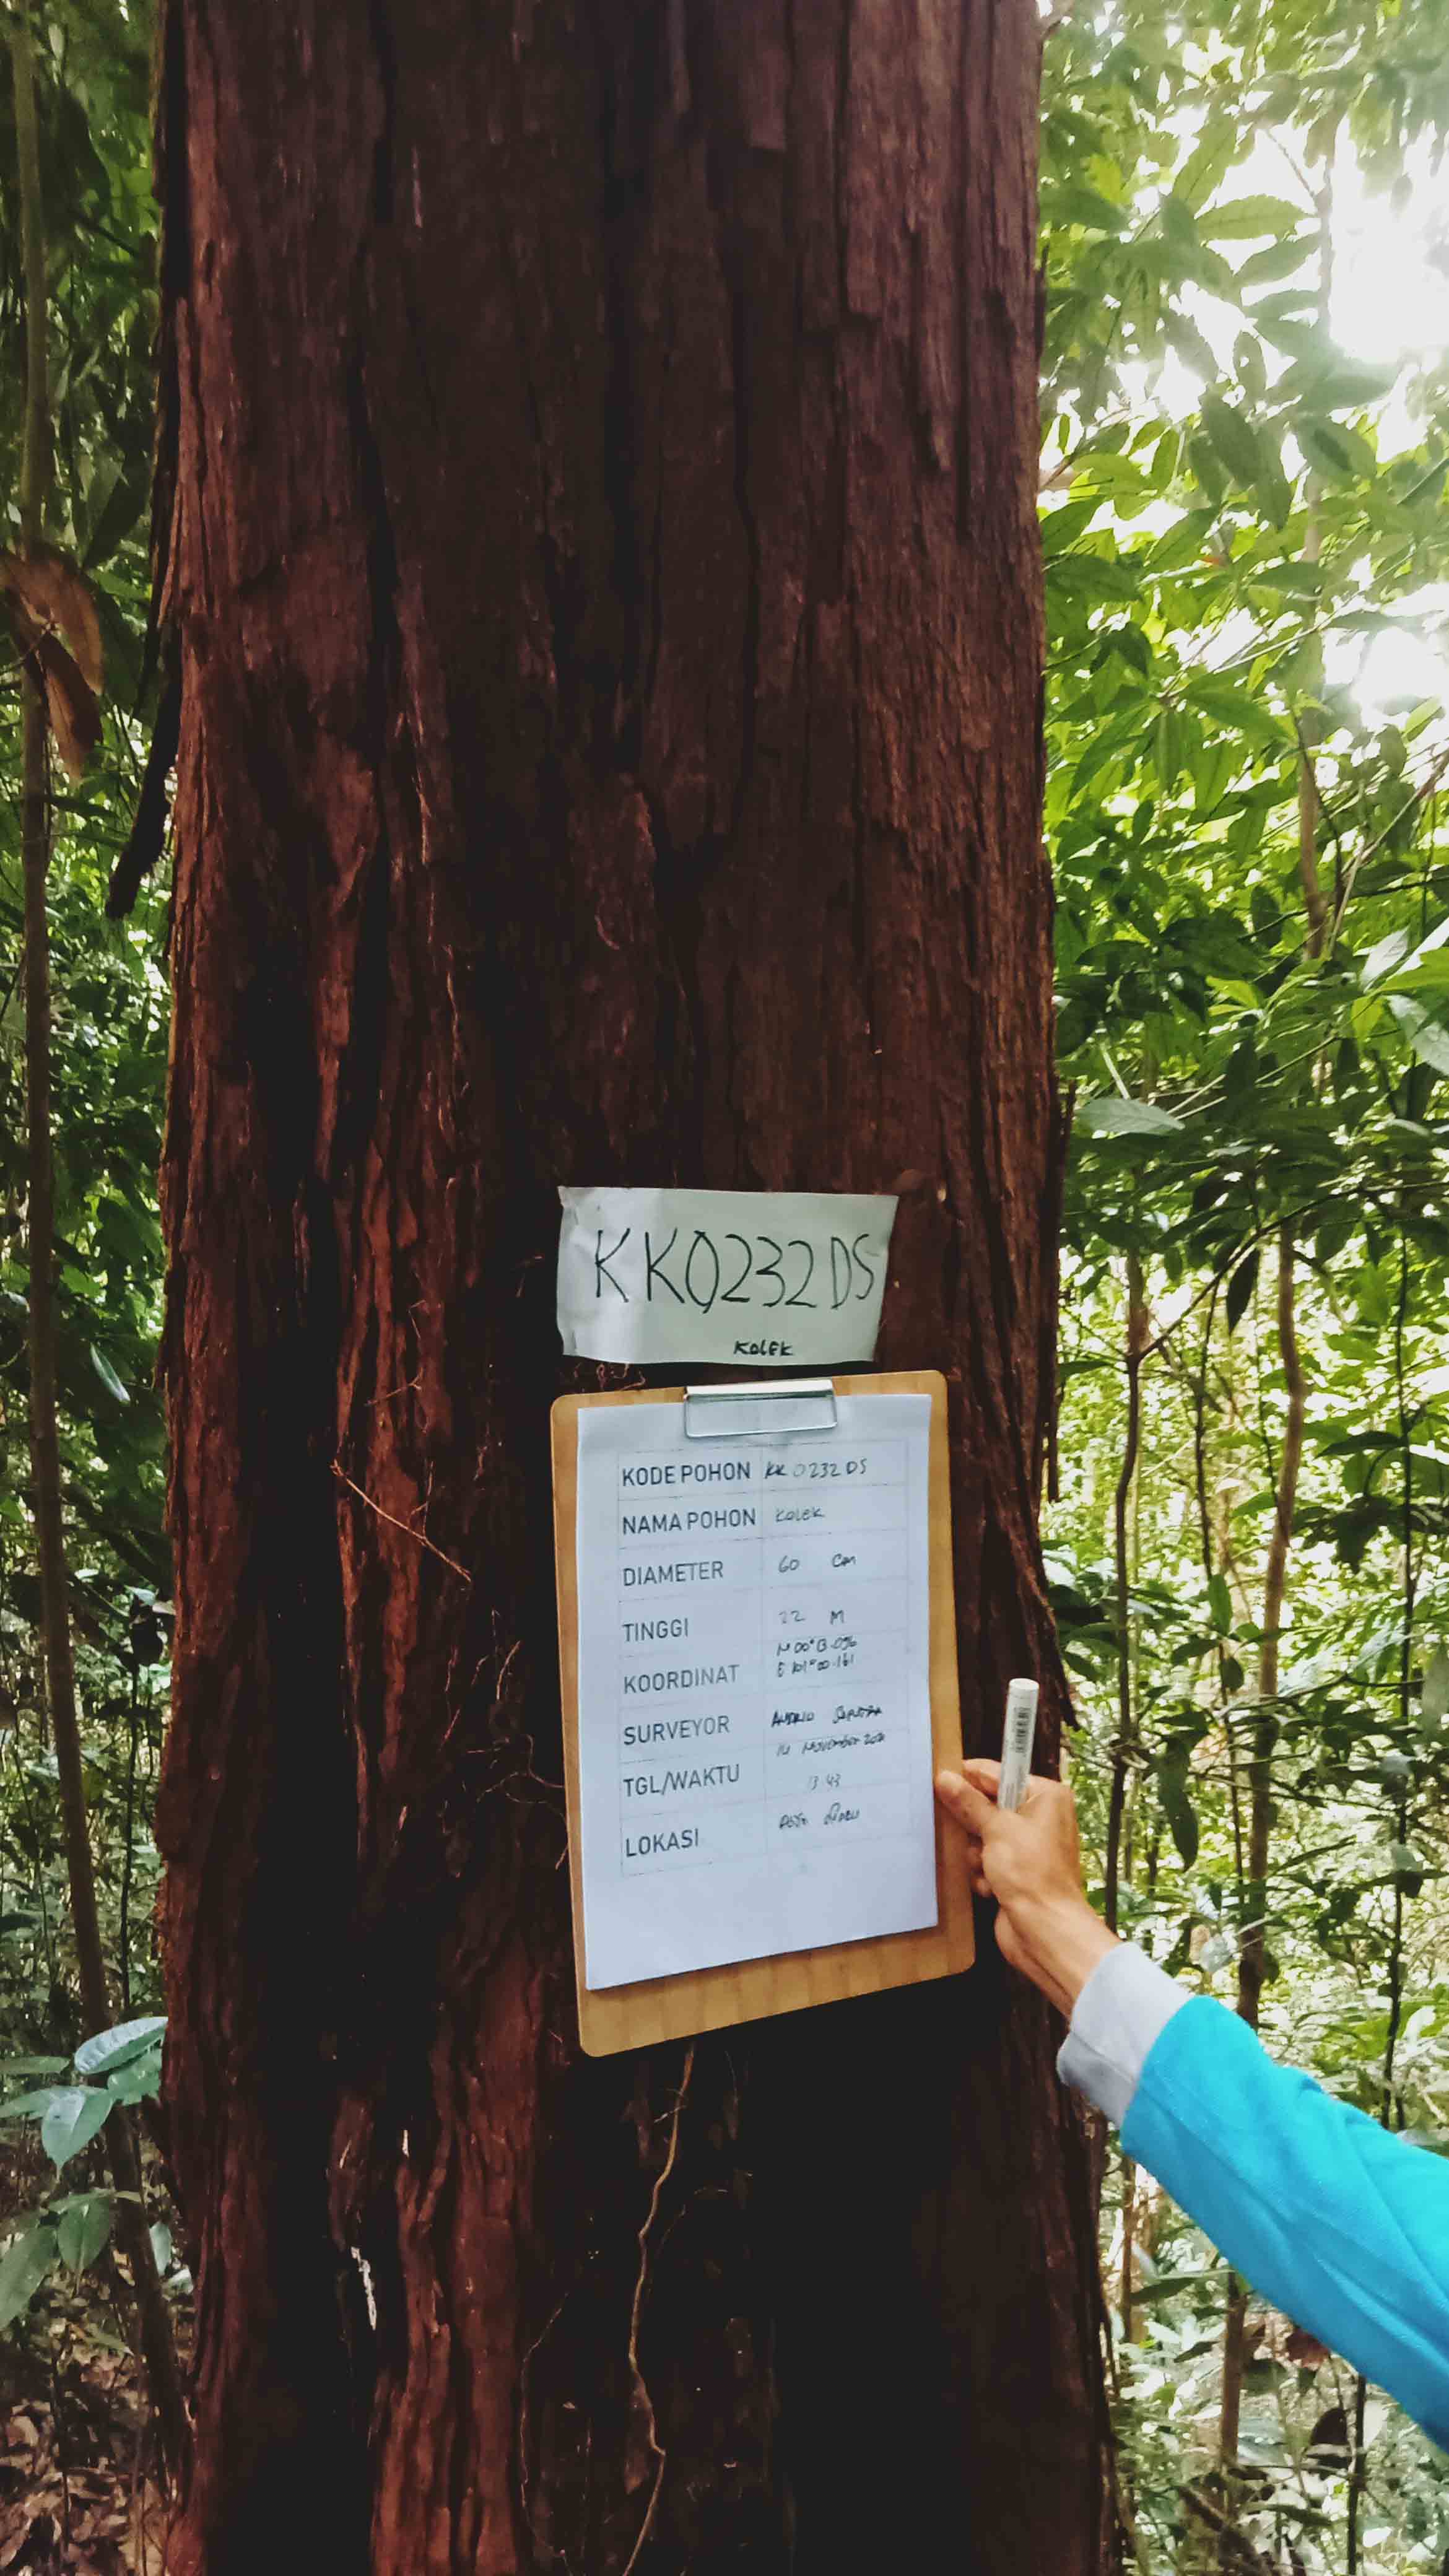 KK0232DS
KOLEK
KODE POHON KK 0232 DS
NAMA POHON KOLEK
DIAMETER 60 Cm
TINGGI 22 M
KOORDINAT N 00° 13.096
E 101° 00.161
SURVEYOR
TGL/WAKTU November
13 43
LOKASI